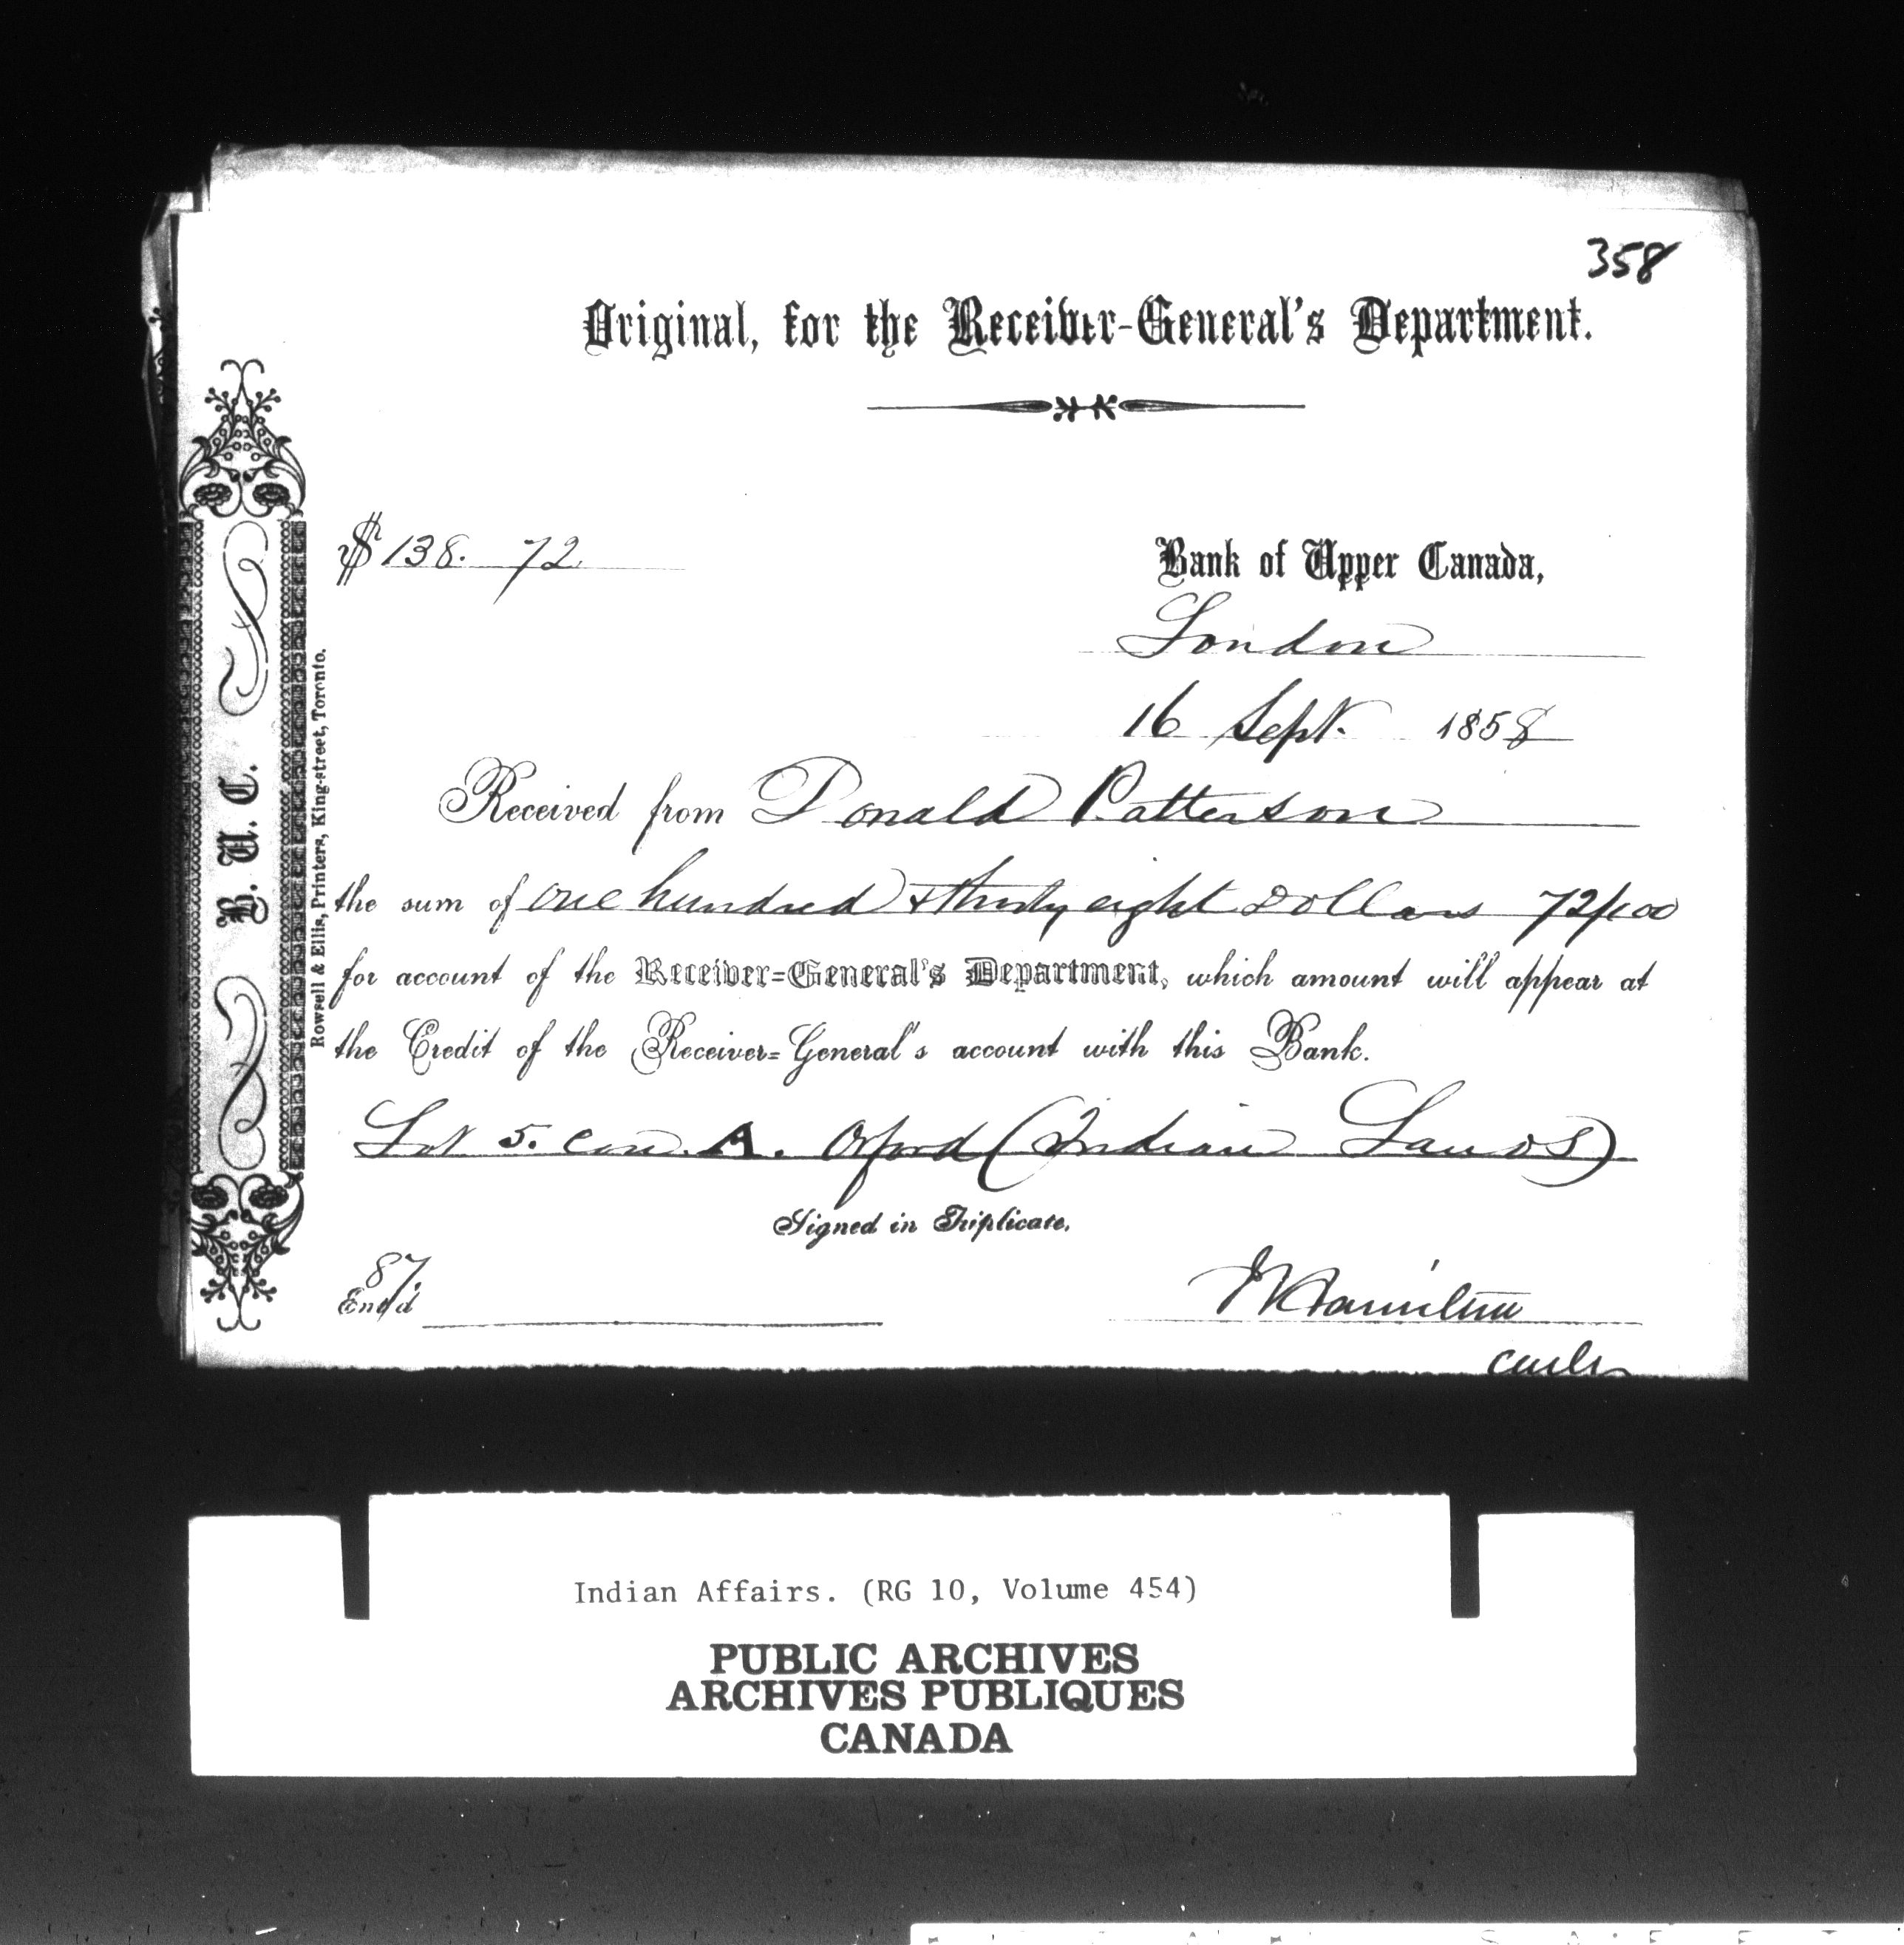 358
Original, for the Receiver-General's Department.
$ 138. 72
Bank of Upper Canada,
London
16 Sept. 1858
Received from Donald Patterson
the sum of one hundred & thirty eight Dollars 72/100
for account of the Receiver=General's Department, which amount will appear at
the Credit of the Receiver=General's account with this Bank.
Lot 5. con. A. Orford (Indian Lands)
Signed in Triplicate.
87.
Ent'd
Hamilton
B. U. C.
Rowsell & Ellis, Printers, King-street, Toronto.
Indian Affairs. (RG 10, Volume 454)
PUBLIC ARCHIVES
ARCHIVES PUBLIQUES
CANADA